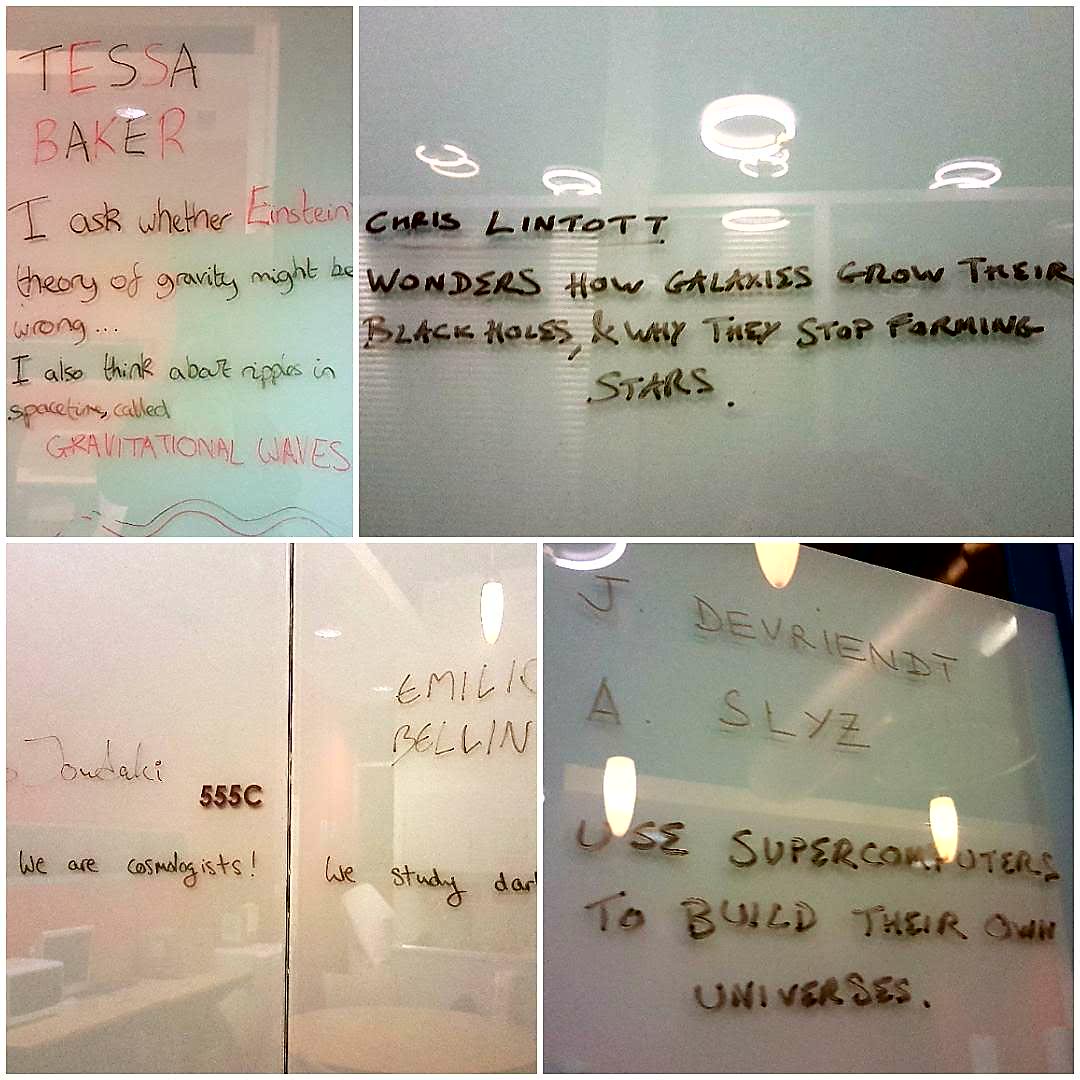 TESSA
BAKER
I ask whether Einstein'
theory of gravity might be
wrong...
I also think about ripples in
spacetime, called
GRAVITATIONAL WAVES
CHRIS LINTOTT
WONDERS HOW GALAXIES GROW THEIR
BLACK HOLES, & WHY THEY STOP FORMING
STARS.
Joudaki
555C
We are cosmologists!
EMILIO
BELLIN
We study dar
J. DEVRIENDT
A. SLYZ
USE SUPERCOMPUTERS
TO BUILD THEIR OWN
UNIVERSES.